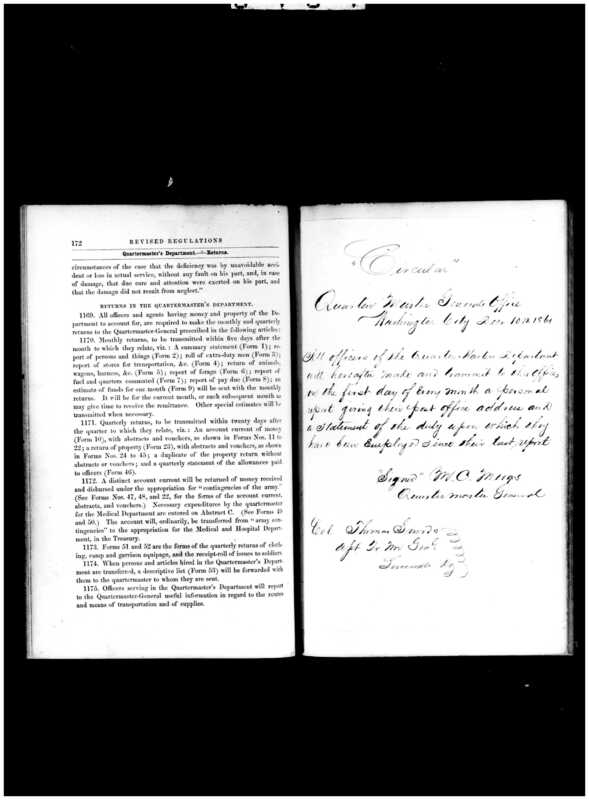 172 REVISED REGULATIONS
Quartermaster's Department.—Returns.
circumstances of the case that the deficiency was by unavoidable acci-
dent or loss in actual service, without any fault on his part, and, in case
of damage, that due care and attention were exerted on his part, and
that the damage did not result from neglect."
RETURNS IN THE QUARTERMASTER'S DEPARTMENT.
1169. All officers and agents having money and property of the De-
partment to account for, are required to make the monthly and quarterly
returns to the Quartermaster-General prescribed in the following articles:
1170. Monthly returns, to be transmitted within five days after the
month to which they relate, viz.: A summary statement (Form 1); re-
port of persons and things (Form 2); roll of extra-duty men (Form 3);
report of stores for transportation, &c. (Form 4); return of animals,
wagons, harness, &c. (Form 5); report of forage (Form 6); report of
fuel and quarters commuted (Form 7); report of pay due (Form 8); an
estimate of funds for one month (Form 9) will be sent with the monthly
returns. It will be for the current month, or such subsequent month as
may give time to receive the remittance. Other special estimates will be
transmitted when necessary.
1171. Quarterly returns, to be transmitted within twenty days after
the quarter to which they relate, viz.: An account current of money
(Form 10), with abstracts and vouchers, as shown in Forms Nos. 11 to
22; a return of property (Form 23), with abstracts and vouchers, as shown
in Forms Nos. 24 to 45; a duplicate of the property return without
abstracts or vouchers; and a quarterly statement of the allowances paid
to officers (Form 46).
1172. A distinct account current will be returned of money received
and disbursed under the appropriation for "contingencies of the army."
(See Forms Nos. 47, 48, and 22, for the forms of the account current,
abstracts, and vouchers.) Necessary expenditures by the quartermaster
for the Medical Department are entered on Abstract C. (See Forms 49
and 50.) The account will, ordinarily, be transferred from "army con-
tingencies" to the appropriation for the Medical and Hospital Depart-
ment, in the Treasury.
1173. Forms 51 and 52 are the forms of the quarterly returns of cloth-
ing, camp and garrison equipage, and the receipt-roll of issues to soldiers.
1174. When persons and articles hired in the Quartermaster's Depart-
ment are transferred, a descriptive list (Form 53) will be forwarded with
them to the quartermaster to whom they are sent.
1175. Officers serving in the Quartermaster's Department will report
to the Quartermaster-General useful information in regard to the routes
and means of transportation and of supplies.
"Circular"
Quarter Master Generals Office
Washington City Dec 10th 1861
All officers of the Quarter Master Department
will hereafter make and transmit to this office
on the first day of Every month a personal
report giving their post office address and
a Statement of the duty upon which they
have been Employed Since their last report
"Signed" M. C. Meigs
Quarter master General
Col. Thomas Swords
Asst Qr Mr Genl
Louisville Ky